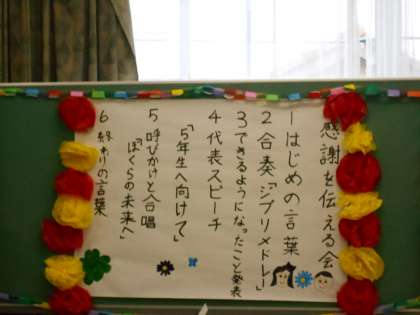 感謝を伝える会
1 はじめの言葉
2 合奏「ジブリメドレー」
3 できるようになったこと発表
4 代表スピーチ
「5年生へ向けて」
5 呼びかけと合唱
「ぼくらの未来へ」
6 終わりの言葉